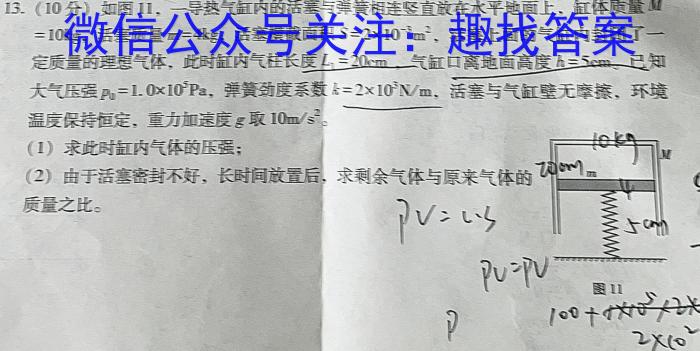 13.(10分)如图11,一导热气缸内的活塞与弹簧相连竖直放在水平地面上,缸体质量M
微信公众号关注:趣找答案
定质量的理想气体,此时缸内气柱长度L₁=20cm,气缸口离地面高度h=5cm。已知
大气压强p₀=1.0×10⁵Pa,弹簧劲度系数k=2×10³N/m,活塞与气缸壁无摩擦,环境
温度保持恒定,重力加速度g取10m/s²。
(1)求此时缸内气体的压强;
(2)由于活塞密封不好,长时间放置后,求剩余气体与原来气体的
质量之比。
10kg
M
20cm
m
4
5cm
图11
PV=
PV=PV
P
100+
2×10²